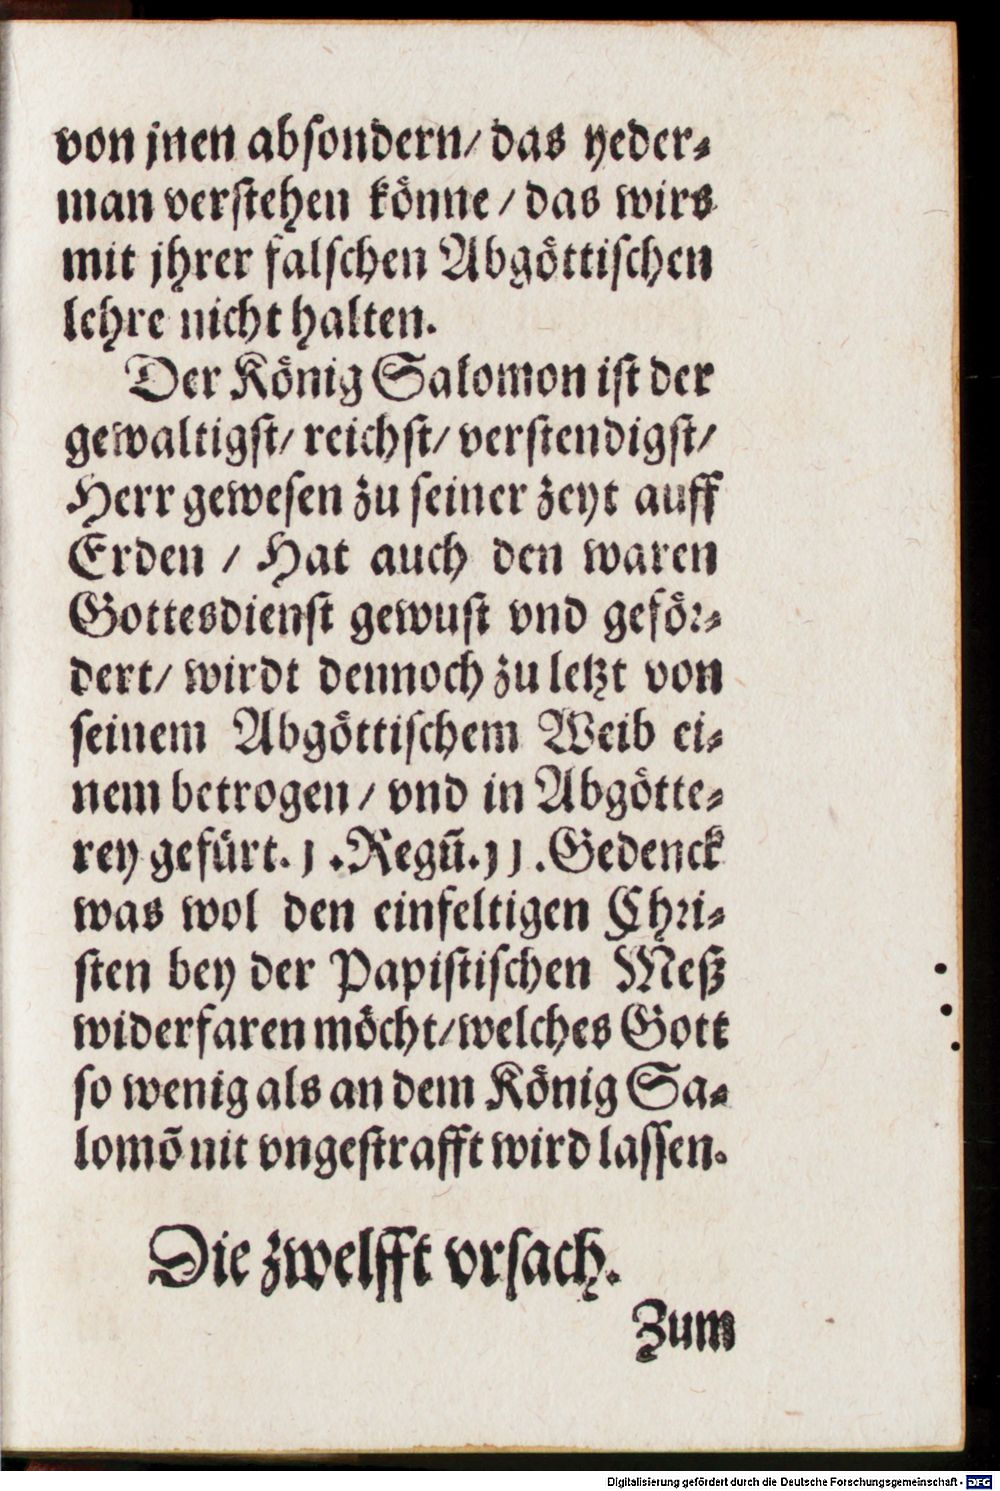 von jnen absondern/ das yeder⸗
man verstehen könne / das wirs
mit jhrer falschen Abgöttischen
lehre nicht halten.
Der König Salomon ist der
gewaltigst/ reichst/ verstendigst/
Herr gewesen zu seiner zeyt auff
Erden / Hat auch den waren
Gottesdienst gewust vnd geför⸗
dert/ wirdt dennoch zu letzt von
seinem Abgöttischem Weib ei⸗
nem betrogen / vnd in Abgötte⸗
rey gefürt. 1 .Regū. 11 .Gedenck
was wol den einfeltigen Chri⸗
sten bey der Papistischen Meß
widerfaren möcht/welches Gott
so wenig als an dem König Sa⸗
lomō nit vngestrafft wird lassen.
Die zwelfft vrsach.
Zum
Digitalisierung gefördert durch die Deutsche Forschungsgemeinschaft - DFG